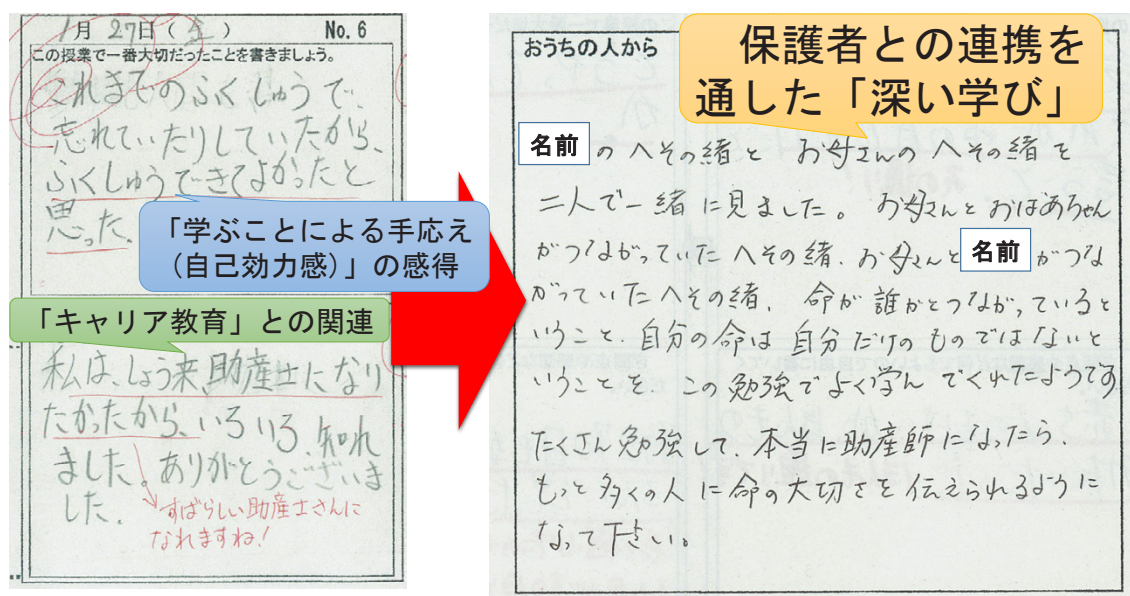 1月27日(金) No.6
この授業で一番大切だったことを書きましょう。
これまでのふくしゅうで、
忘れていたりしていたから、
ふくしゅうできてよかったと
思った。
「学ぶことによる手応え
(自己効力感)」の感得
「キャリア教育」との関連
私は、しょう来、助産士になり
たかったから、いろいろ知れ
ました。ありがとうございま
した。
すばらしい助産士さんに
なれますね!
おうちの人から
保護者との連携を
通した「深い学び」
名前のへその緒と お母さんのへその緒を
二人で一緒に見ました。お母さんとおばあちゃん
がつながっていたへその緒、お母さんと名前がつな
がっていたへその緒、命が誰かとつながっていると
いうこと、自分の命は自分だけのものではないと
いうことを、この勉強でよく学んでくれたようです
たくさん勉強して、本当に助産師になったら、
もっと多くの人に命の大切さを伝えられるように
なって下さい。